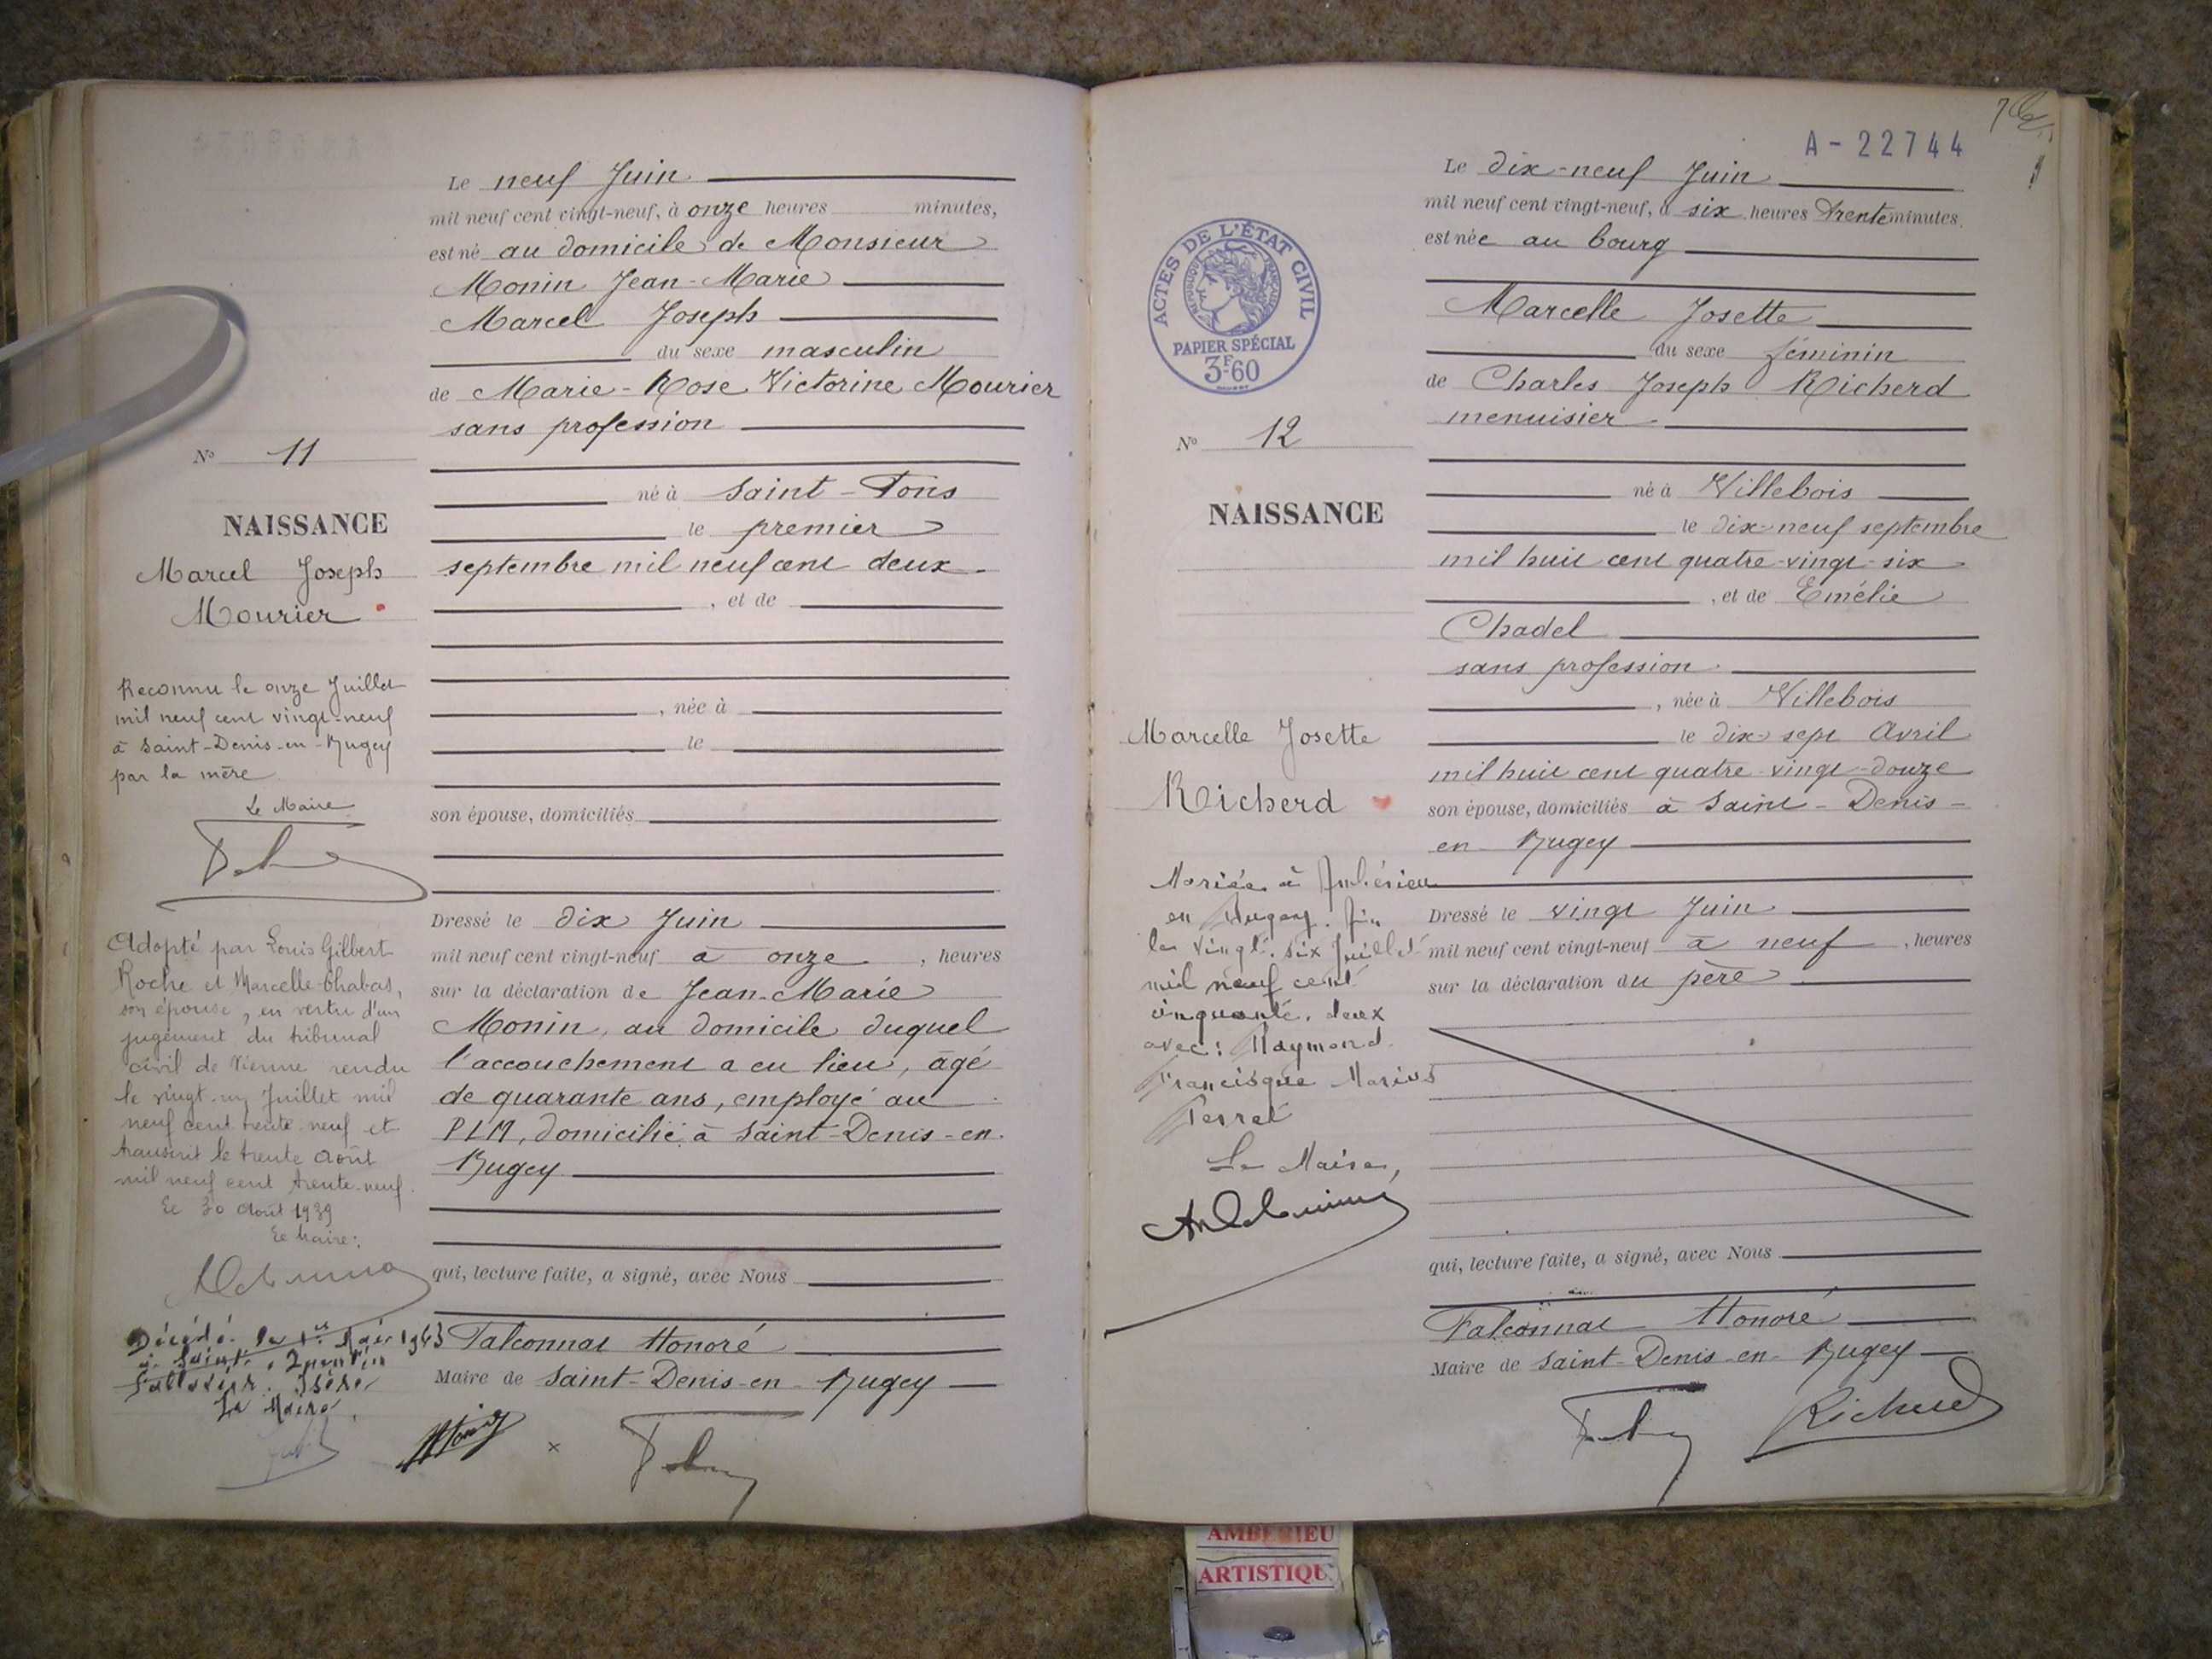 Le neuf Juin
mil neuf cent vingt-neuf, à onze heures minutes,
est né au domicile de Monsieur
Monin Jean-Marie
Marcel Joseph
du sexe masculin
de Marie-Rose Victorine Mourier
sans profession
né à Saint-Fons
le premier
septembre mil neuf cent deux
, et de
, née à
le
son épouse, domiciliés
Dressé le dix Juin
mil neuf cent vingt-neuf à onze, heures
sur la déclaration de Jean-Marie
Monin, au domicile duquel
l'accouchement a eu lieu, âgé
de quarante ans, employé au
PLM, domicilié à Saint-Denis-en-
Bugey
qui, lecture faite, a signé, avec Nous
Falconnat Honoré
Maire de Saint-Denis-en-Bugey
N° 11
NAISSANCE
Marcel Joseph
Mourier
Reconnu le onze Juillet
mil neuf cent vingt-neuf
à Saint-Denis-en-Bugey
par la mère
Le Maire
Adopté par Louis Gilbert
Roche et Marcelle Chabas,
son épouse, en vertu d'un
jugement du tribunal
civil de Vienne rendu
le vingt-un Juillet mil
neuf cent trente-neuf et
transcrit le trente Août
mil neuf cent trente-neuf.
Le 30 Août 1939
Le Maire:
Décédé le 1er
à Saint-Quentin
Fallavier. Isère
Le Maire,
A-22744
Le dix-neuf Juin
mil neuf cent vingt-neuf, à six heures trente minutes.
est née au bourg
Marcelle Josette
du sexe féminin
de Charles Joseph Richerd
menuisier
né à Villebois
le dix-neuf septembre
mil huit cent quatre-vingt-six
, et de Emélie
Chadel
sans profession
, née à Villebois
le dix-sept Avril
mil huit cent quatre-vingt-douze
son épouse, domiciliés à Saint-Denis-
en-Bugey
Dressé le vingt Juin
mil neuf cent vingt-neuf à neuf, heures
sur la déclaration du père
qui, lecture faite, a signé, avec Nous
Falconnat Honoré
Maire de Saint-Denis-en-Bugey
Richerd
ACTES DE L'ÉTAT CIVIL
RÉPUBLIQUE FRANÇAISE
PAPIER SPÉCIAL
3F60
N° 12
NAISSANCE
Marcelle Josette
Richerd
Mariée à Ambérieu
en Bugey. Ain
le vingt-six Juillet
mil neuf cent
cinquante-deux
avec: Raymond
Francisque Marius
Perret
Le Maire,
AMBERIEU
ARTISTIQU